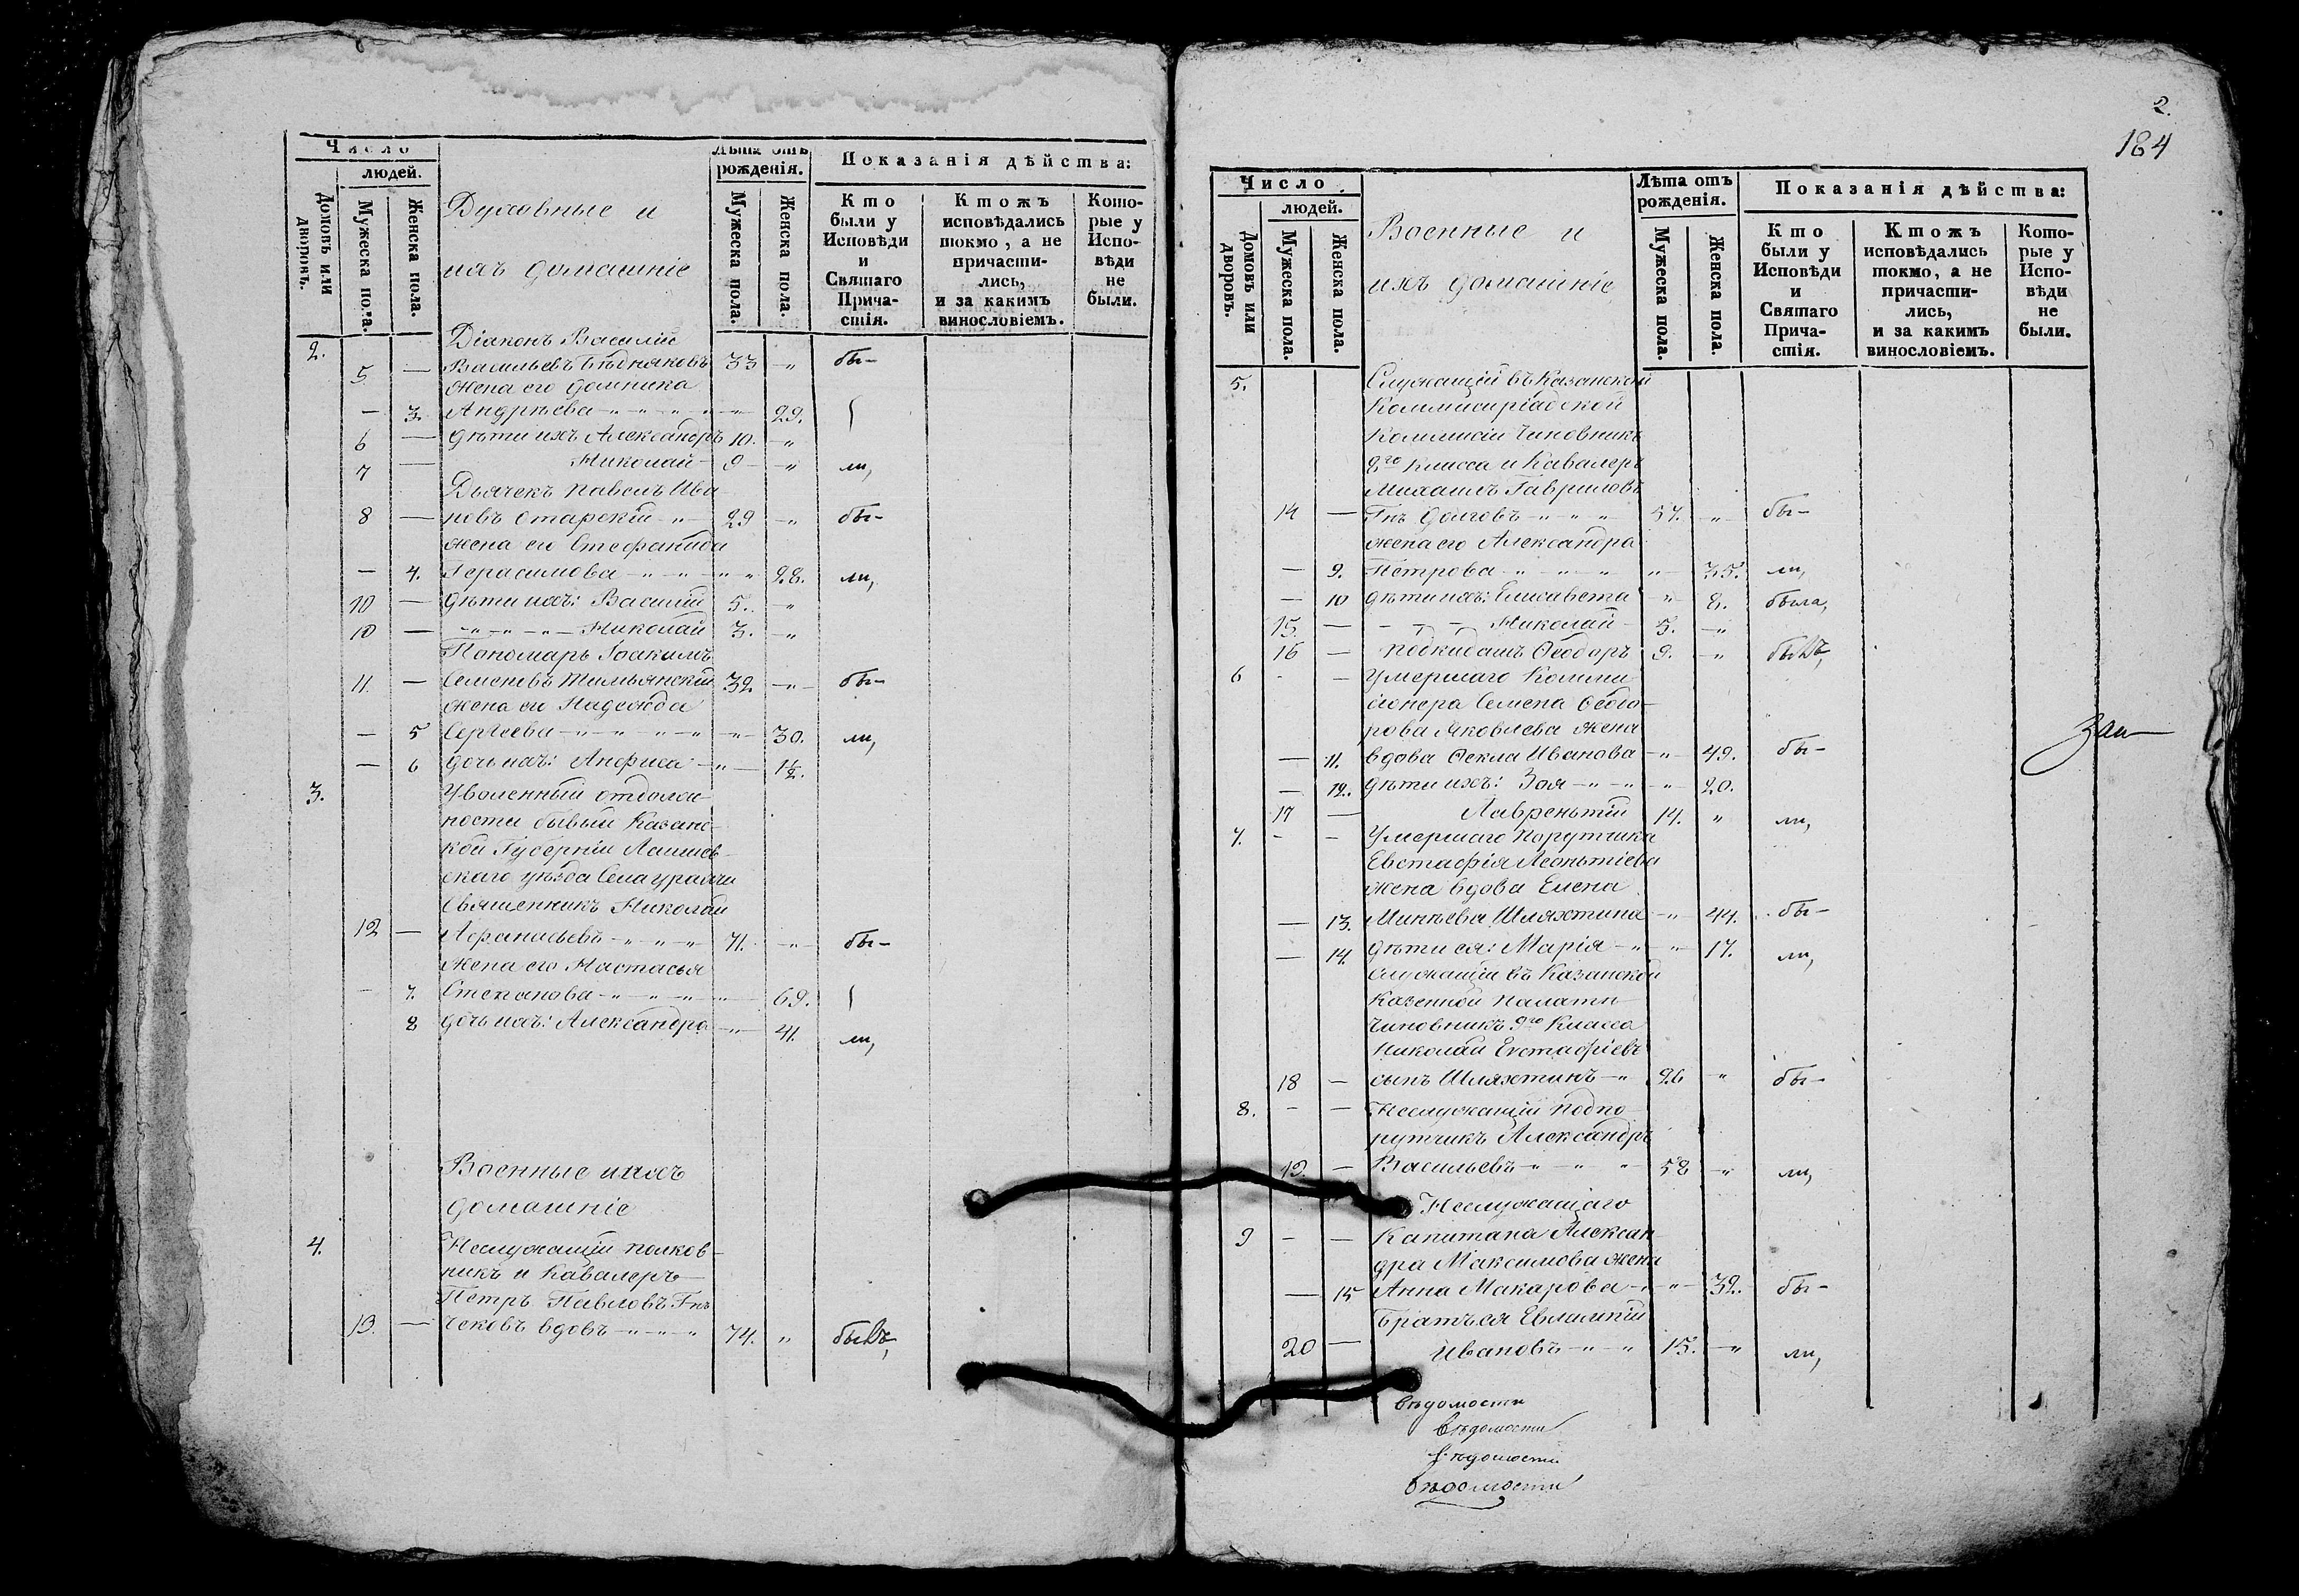 Число
людей.
Домовъ или дворовъ.
Мужеска пола.
Женска пола.
Духовные и
ихъ домашніе
Лѣта отъ
рожденія.
Мужеска пола.
Женска пола.
Показанія дѣйства:
Кто были у Исповѣди и Святаго Прича-стія.
Ктожъ исповѣдались токмо, а не причасти-лись, и за какимъ винословіемъ.
Кото-рые у Испо-вѣди не были.
2. Діаконъ Василій
5 — Васильевъ Бѣдняковъ 33 - „ бы-
жена его Домника
— 3. Андрѣева - „ - „ - „ - 29.
6 — дѣти ихъ Александръ 10. - „
7 — Николай - 9 - „ ли,
Дьячекъ Павелъ Ива
8 — новъ Отарскій - „ - 29 - „ бы-
жена его Стефанида
— 4. Герасимова - „ - „ - „ „ 28. ли,
10 — дѣти ихъ: Василій 5. - „
10 — - „ - „ - „ - Николай 3. - „
Пономарь Іоакимъ
11. — Семеновъ Тимьянскій 32 - „ - бы-
жена его
— 5 Сергѣева - „ - „ - „ - „ - „ - 30. ли,
— 6 дочь ихъ: Анфиса - „ — 1½.
3. Уволенный отдолж
ности бывый Казанс-
кой Губерніи Лаишев-
скаго уѣзда Села
священникъ Николай
12 — Афанасьевъ - „ - „ - „ 71. - „ - бы-
жена его Настасья
- 7. Степанова - „ - „ - „ „ — 69.
8 дочь ихъ: Александра - „ - 41. ли,
Военные иихъ
домашніе
4. Неслужащій полков-
никъ и Кавалеръ
Петръ Павловъ Гнъ
13. — Чековъ вдовъ - „ - „ - „ 74. „ былъ,
2.
184
Число
людей.
Домовъ или дворовъ.
Мужеска пола.
Женска пола.
Военные и
ихъ домашніе
Лѣта отъ
рожденія.
Мужеска пола.
Женска пола.
Показанія дѣйства:
Кто были у Исповѣди и Святаго Прича-стія.
Ктожъ исповѣдались токмо, а не причасти-лись, и за какимъ винословіемъ.
Кото-рые у Испо-вѣди не были.
5. Служащій въ Казанской
Коммисиріадской
Коммисіи Чиновникъ
8го класса и Кавалеръ
Михаилъ Гавриловъ
14 — Гнъ Долговъ - „ - „ - „ 57. - „ - бы-
жена его Александра
— 9. Петрова - „ - „ - „ „ - 35. ли,
— 10 дѣти ихъ: Елисавета „ 8. была,
15. — Николай - 5. - „
16 — подкидышъ Феодоръ 9. - „ былъ,
6 - — Умершаго Комми
сіонера Семена Федо-
рова Яковлева жена
— 11. вдова Фекла Иванова - „ - 49. бы-
— 12. дѣти ихъ: Зоя - „ - „ - „ - 20.
зап
17 — Лавреньтій 14. „ ли,
7. - - Умершаго Порутчика
Евстафія Леоньтіева
жена вдова Елена
— 13. Минѣева Шляхтина - „ 44. бы-
— 14. дѣти ея: Марія - „ - „ 17. ли,
Служащій въ Казанской
Казенной Палатѣ
Чиновникъ 9го Класса
Николай Евстафіевъ
18 — сынъ Шляхтинъ - „ 26 „ бы-
8. - — Неслужащій Подпо
рутчикъ Александръ
19. — Васильевъ - „ - „ - „ 58 „ ли,
Неслужащаго
9 - — Капитана Алексан
дра Максимова жена
— 15 Анна Макарова - „ „ - 32. бы-
Братъ ея Евлампій
20 — Ивановъ - „ - „ 15. - „ ли,
вѣдомости
вѣдомости
вѣдомости
вѣдомости